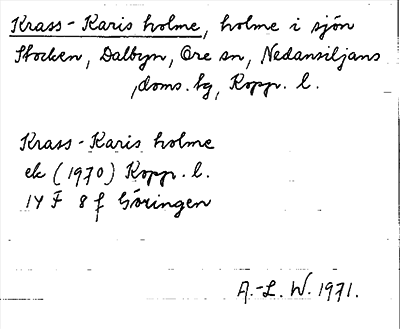 Krass-Karis holme, holme i sjön
Stocken, Dalbyn, Ore sn, Nedansiljans
doms.hg, Kopp. l.
Krass-Karis holme
ek (1970) Kopp. l.
14 F 8 f Göringen
A.-L. W. 1971.